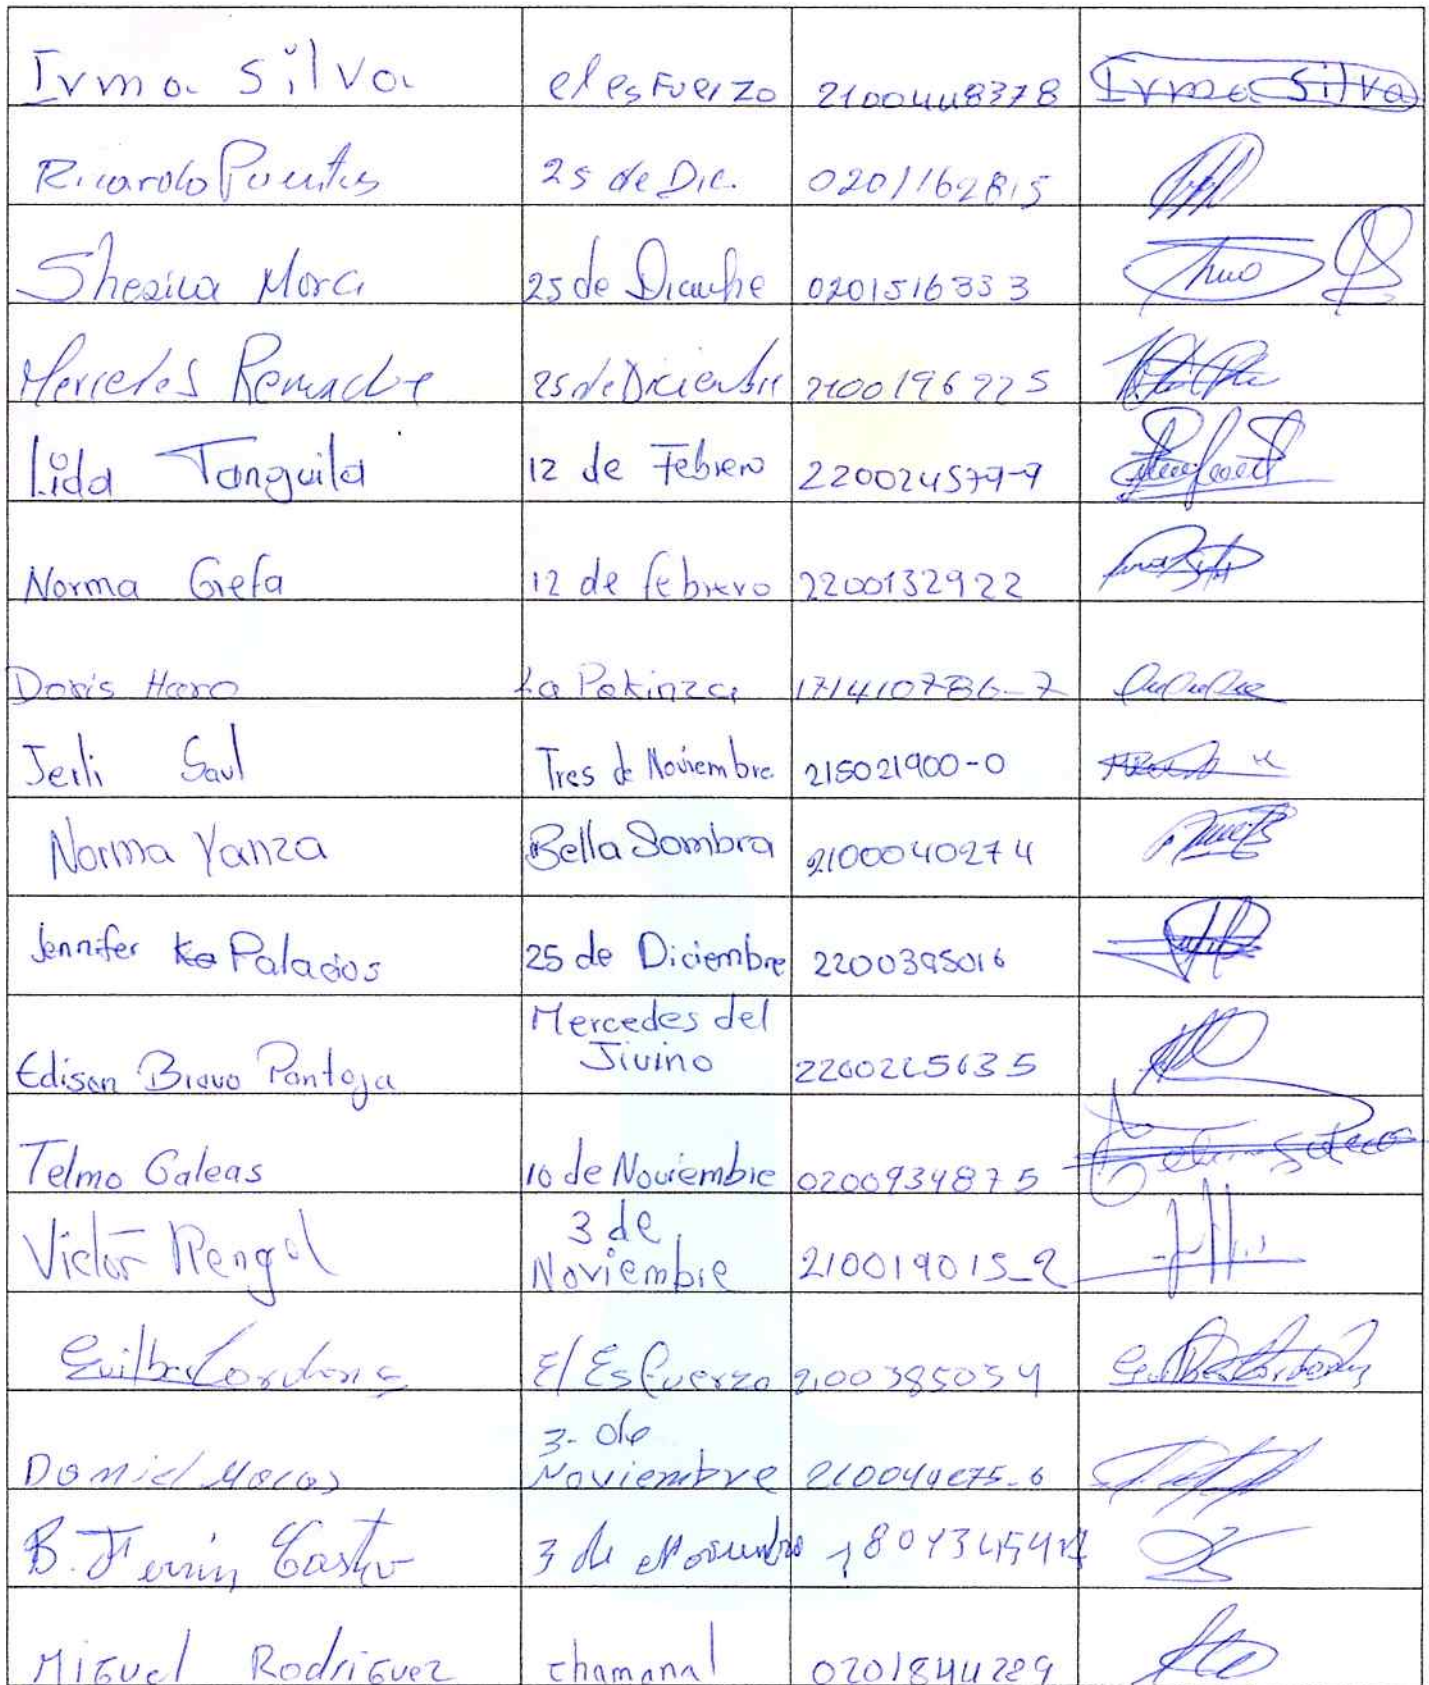 Irma Silva el esfuerzo 2100448378 Irma Silva
Ricardo Puentes 25 de Dic. 0201162815
Shesica Mora 25 de Diciembre 0201516333
Mercedes Remache 25 de Diciembre 2100196225
Lida Tanguila 12 de Febrero 220024579-9
Norma Grefa 12 de febrero 2200132922
Doris Haro La Pakinza 171410786-7
Jerli Saul Tres de Noviembre 215021900-0
Norma Yanza Bella Sombra 2100040274
Jennifer Palacios 25 de Diciembre 2200395016
Mercedes del
Edison Bravo Pantoja Jivino 2200225635
Telmo Galeas 10 de Noviembre 0200934875
3 de
Victor Rengel Noviembre 210019015-2
El Esfuerzo 2100385034
3- de
Daniel Macas Noviembre
B. Castro 3 de Noviembre
Miguel Rodriguez chamanal 0201844289